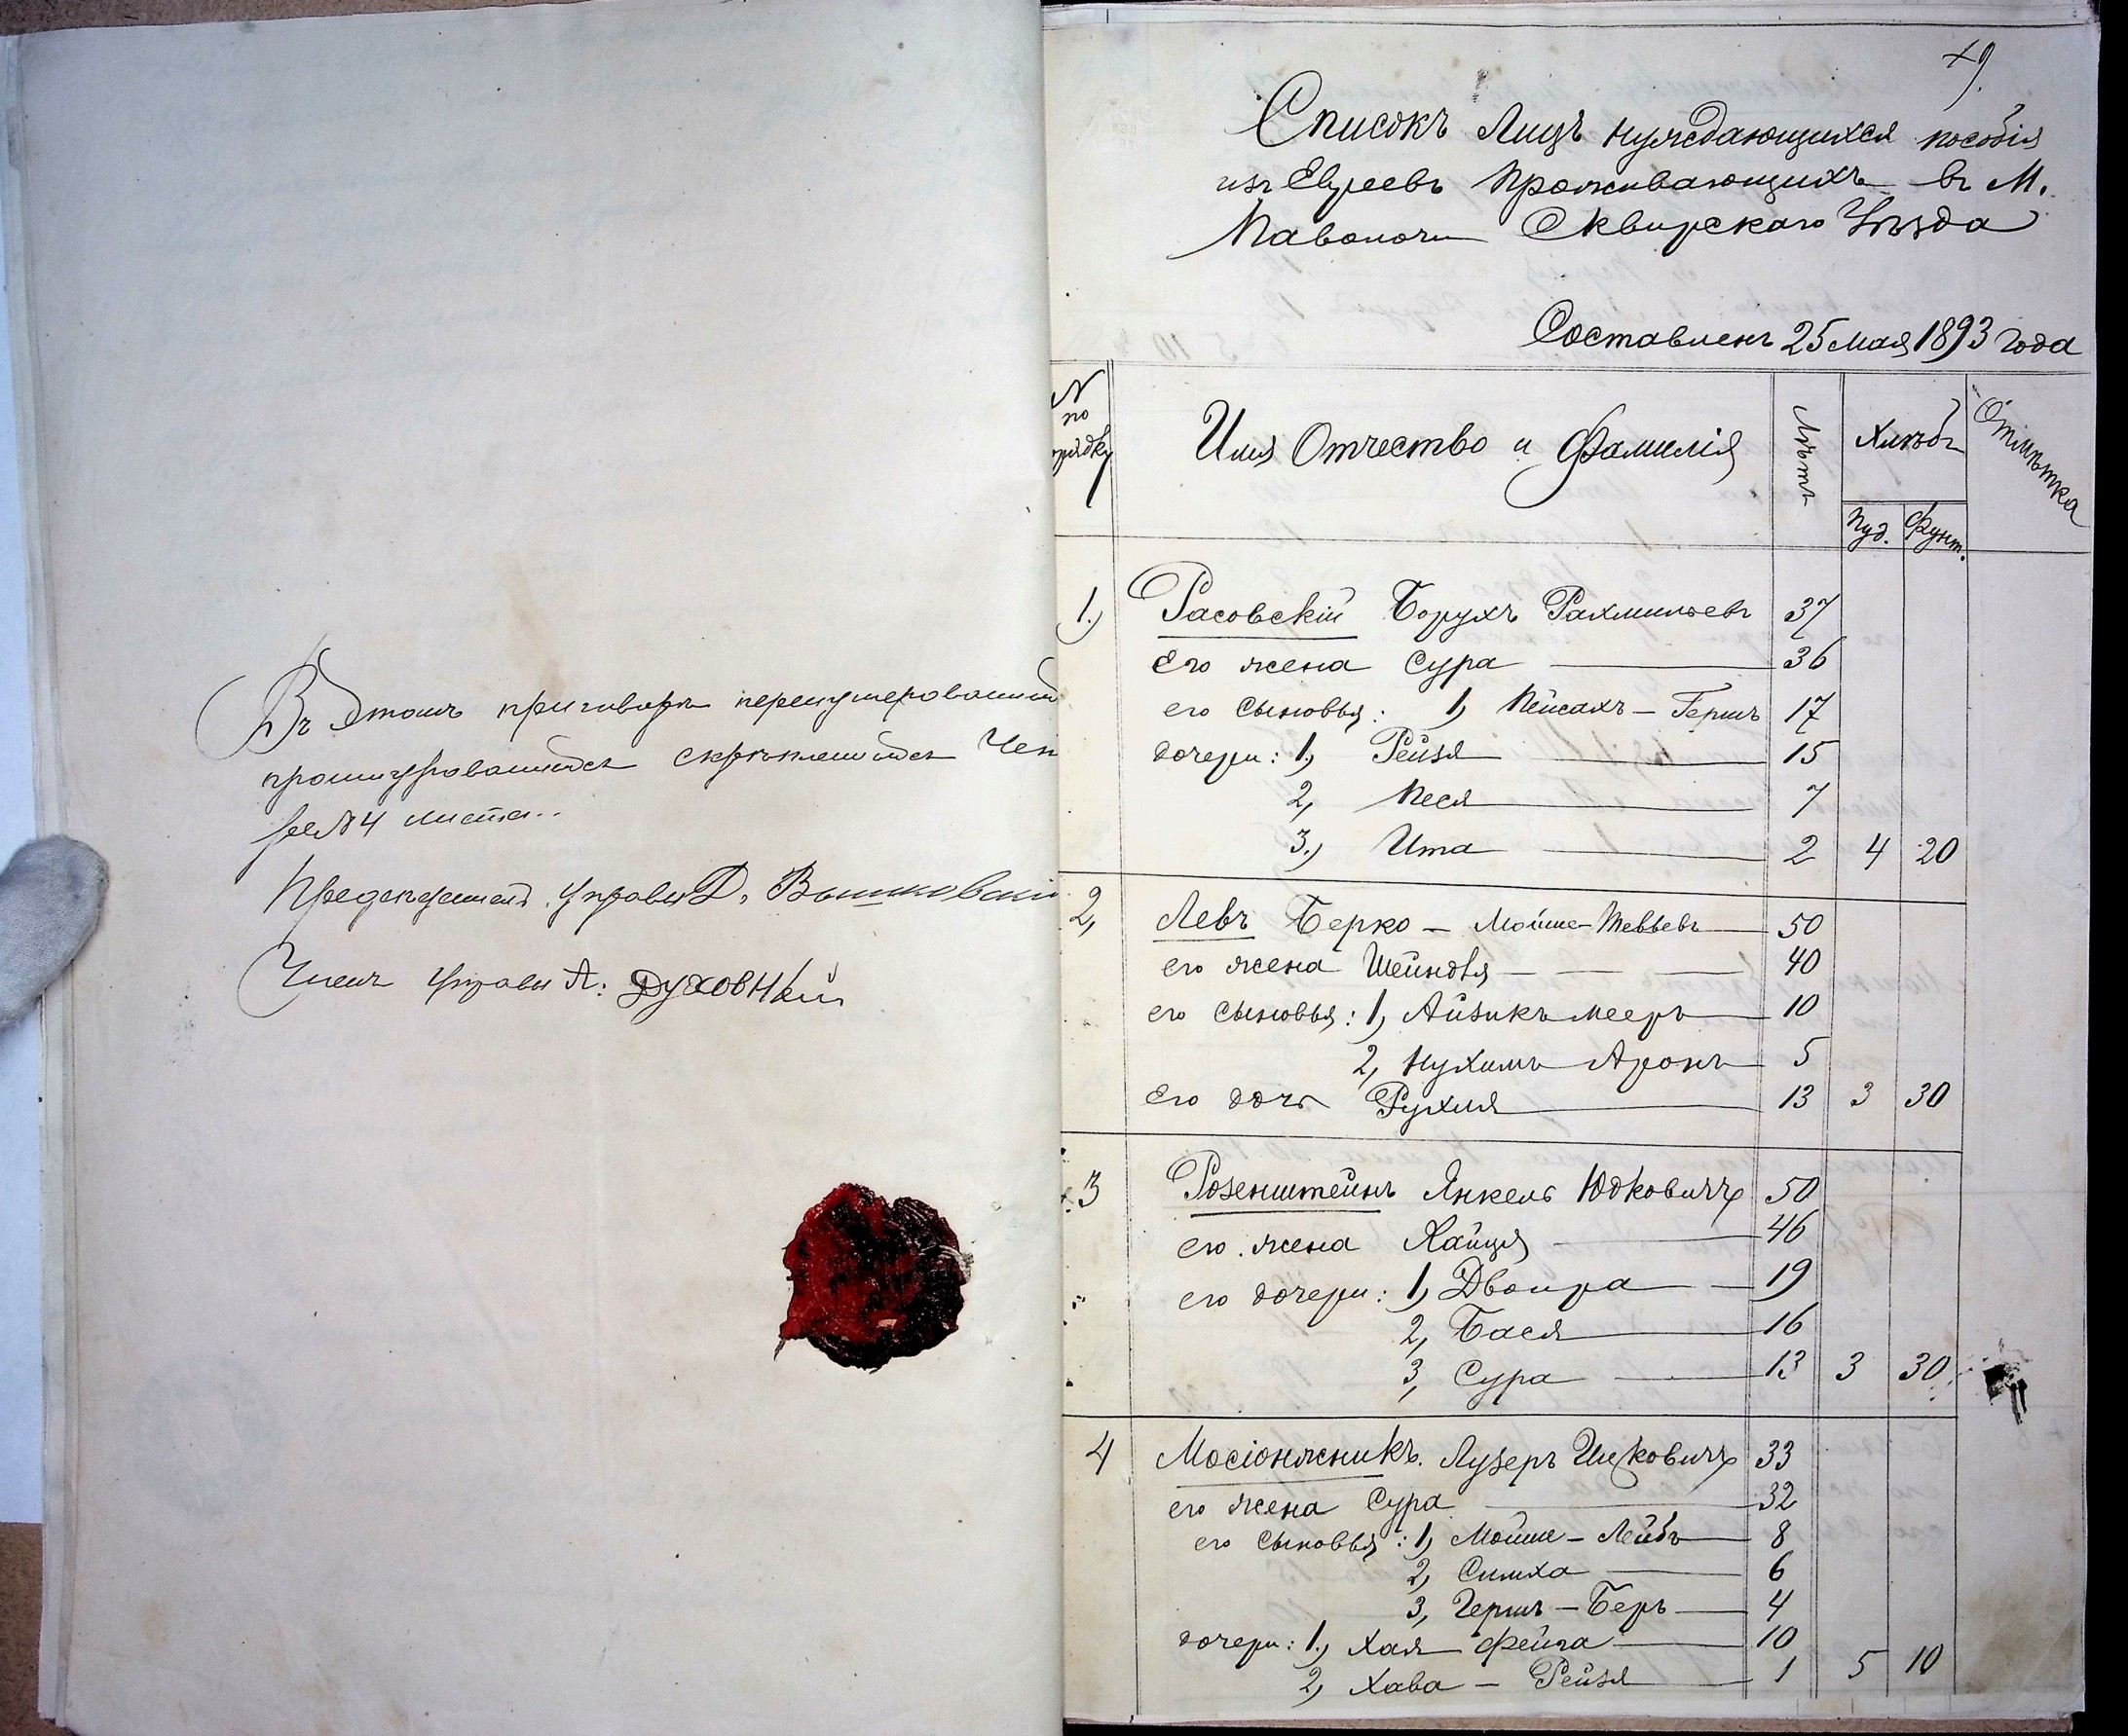 Въ Этомъ приговоръ перенумерованныхъ
прошнурованныхъ скрѣпленныхъ
4 листа..
Предсѣдатель Управы Д. Вышковскій
Членъ Управы А: Духовный
79.
Списокъ Лицъ нуждающихся пособія
изъ Евреевъ Проживающихъ въ М.
Паволочи Сквирскаго Уѣзда
Составленъ 25 Мая 1893 Года
№ по порядку
Имя Отчество и Фамилія
Лѣтъ
Хлѣбъ
Пуд. Фунт.
Отмѣтка
1.) Расовскій Борухъ Рахмильевъ 37
Его жена Сура 36
его сыновья: 1) Пейсахъ – Гершъ 17
дочери: 1, Рейзя 15
2, Песя 7
3.) Ита 2 4 20
2, Левъ Берко – Мойше-Тевьевъ 50
его жена Шейндля 40
его сыновья: 1, Айзикъ мееръ 10
2, Нухимъ Аронъ 5
Его дочь Рухля 13 3 30
3 Розенштейнъ Янкель Юдковичъ 50
его жена Хайця 46
его дочери: 1, Двойра 19
2, Бася 16
3, Сура 13 3 30
4 Мосіонжникъ. Лузеръ Ицковичъ 33
его жена Сура 32
его сыновья: 1) Мойше – Лейбъ 8
2) Симха 6
3, Гершъ – Беръ 4
дочери: 1.) Хая Фейга 10
2) Хава – Рейзя 1 5 10